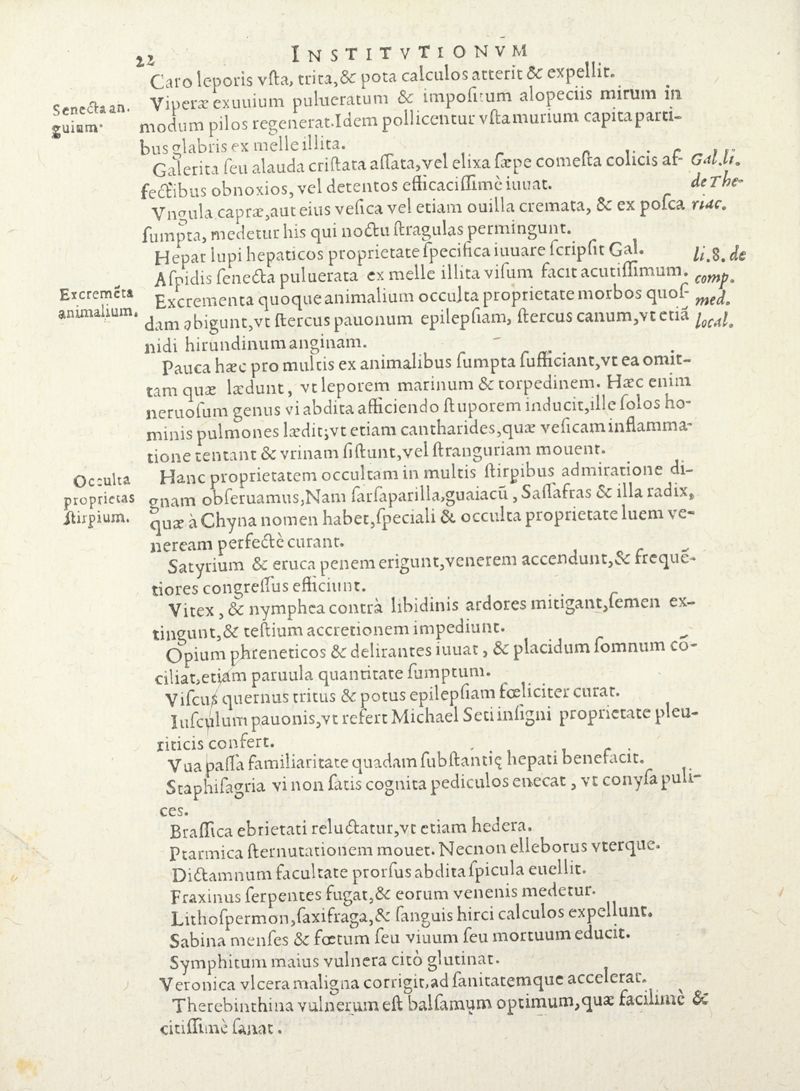 22
INSTITVTIONVM
Caro leporis vſta, trita,& pota calculos atterit & expellit.
Senecta an-
guium.
Viperæ exuuium pulueratum & impoſitum alopeciis mirum in
modum pilos regenerat.Idem pollicentur vſta murium capita parti-
bus glabris ex melle illita.
Galerita ſeu alauda criſtata aſſata,vel elixa ſæpe comeſta colicis af-
Gal.li.
fectibus obnoxios, vel detentos efficaciſſimè iuuat.
de The-
Vngula capræ,aut eius veſica vel etiam ouilla cremata, & ex poſca
riac.
ſumpta, medetur his qui noctu ſtragulas permingunt.
Hepar lupi hepaticos proprietate ſpecifica iuuare ſcripſit Gal.
li.8. de
Aſpidis ſenecta puluerata ex melle illita viſum facit acutiſſimum.
comp.
Excremẽta
animalium.
Excrementa quoque animalium occulta proprietate morbos quoſ-
med.
dam abigunt,vt ſtercus pauonum epilepſiam, ſtercus canum,vt etiã
local.
nidi hirundinum anginam.
Pauca hæc pro multis ex animalibus ſumpta ſufficiant,vt ea omit-
tam quæ lædunt, vt leporem marinum & torpedinem. Hæc enim
neruoſum genus vi abdita afficiendo ſtuporem inducit,ille ſolos ho-
minis pulmones lædit;vt etiam cantharides,quæ veſicam inflamma-
tione tentant & vrinam ſiſtunt,vel ſtranguriam mouent.
Occulta
proprietas
ſtirpium.
Hanc proprietatem occultam in multis ſtirpibus admiratione di-
gnam obſeruamus,Nam ſarſaparilla,guaiacũ, Saſſafras & illa radix,
quæ à Chyna nomen habet,ſpeciali & occulta proprietate luem ve-
neream perfectè curant.
Satyrium & eruca penem erigunt,venerem accendunt,& frequẽ-
tiores congreſſus efficiunt.
Vitex, & nymphea contrà libidinis ardores mitigant,ſemen ex-
tingunt,& teſtium accretionem impediunt.
Opium phreneticos & delirantes iuuat, & placidum ſomnum cõ-
ciliat,etiam paruula quantitate ſumptum.
Viſcus quernus tritus & potus epilepſiam fœliciter curat.
Iuſculum pauonis,vt refert Michael Seti inſigni proprietate pleu-
riticis confert.
Vua paſſa familiaritate quadam ſubſtantię hepati benefacit.
Staphiſagria vi non ſatis cognita pediculos enecat, vt conyſa puli-
ces.
Braſſica ebrietati reluctatur,vt etiam hedera.
Ptarmica ſternutationem mouet. Necnon elleborus vterque.
Dictamnum facultate prorſus abdita ſpicula euellit.
Fraxinus ſerpentes fugat,& eorum venenis medetur.
Lithoſpermon,ſaxifraga,& ſanguis hirci calculos expellunt.
Sabina menſes & fœtum ſeu viuum ſeu mortuum educit.
Symphitum maius vulnera citò glutinat.
Veronica vlcera maligna corrigit,ad ſanitatemque accelerat.
Therebinthina vulnerum eſt balſamum optimum,quæ facilimè &
citiſſimè ſanat.